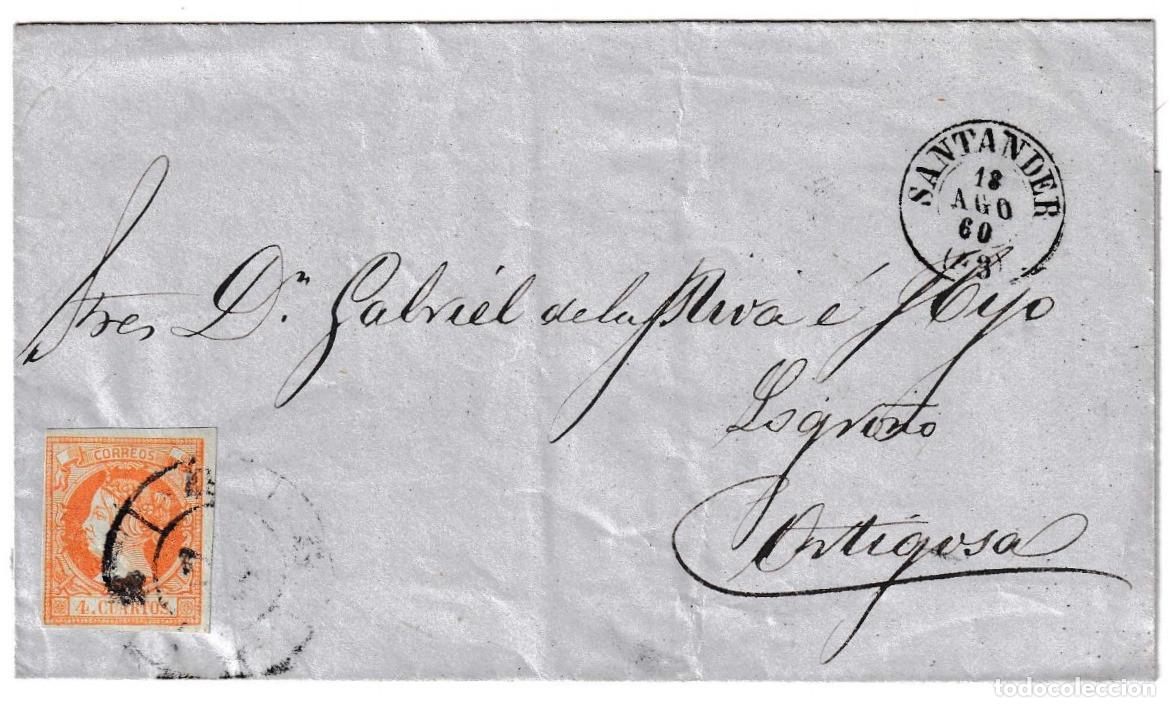 SANTANDER
18
AGO
60
Sres Dn. Gabriel de la Riva é Hijo
Logroño
Ortigosa
CORREOS
4. CUARTOS
todocoleccion